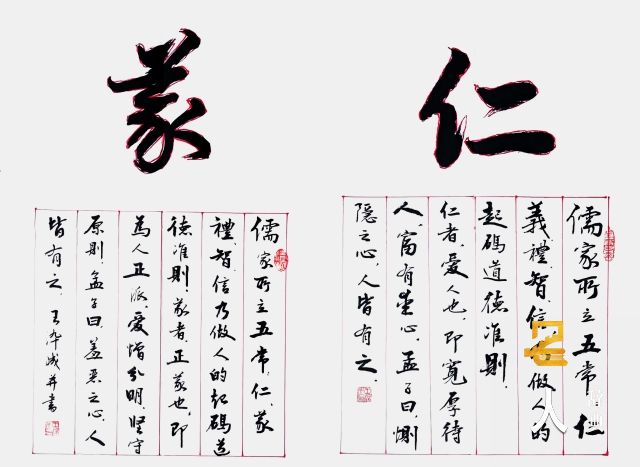 仁
儒家所立五常,仁
義、禮、智、信 做人的
起碼道德准則。
仁者,爱人也,即寬厚待
人,富有爱心。孟子曰,惻
隱之心,人皆有之。
義
儒家所立五常,仁、義
禮、智、信乃做人的起碼道
德准則。義者,正義也,即
為人正派,爱憎分明,堅守
原則。孟子曰,羞惡之心,人
皆有之。王 成并書
人